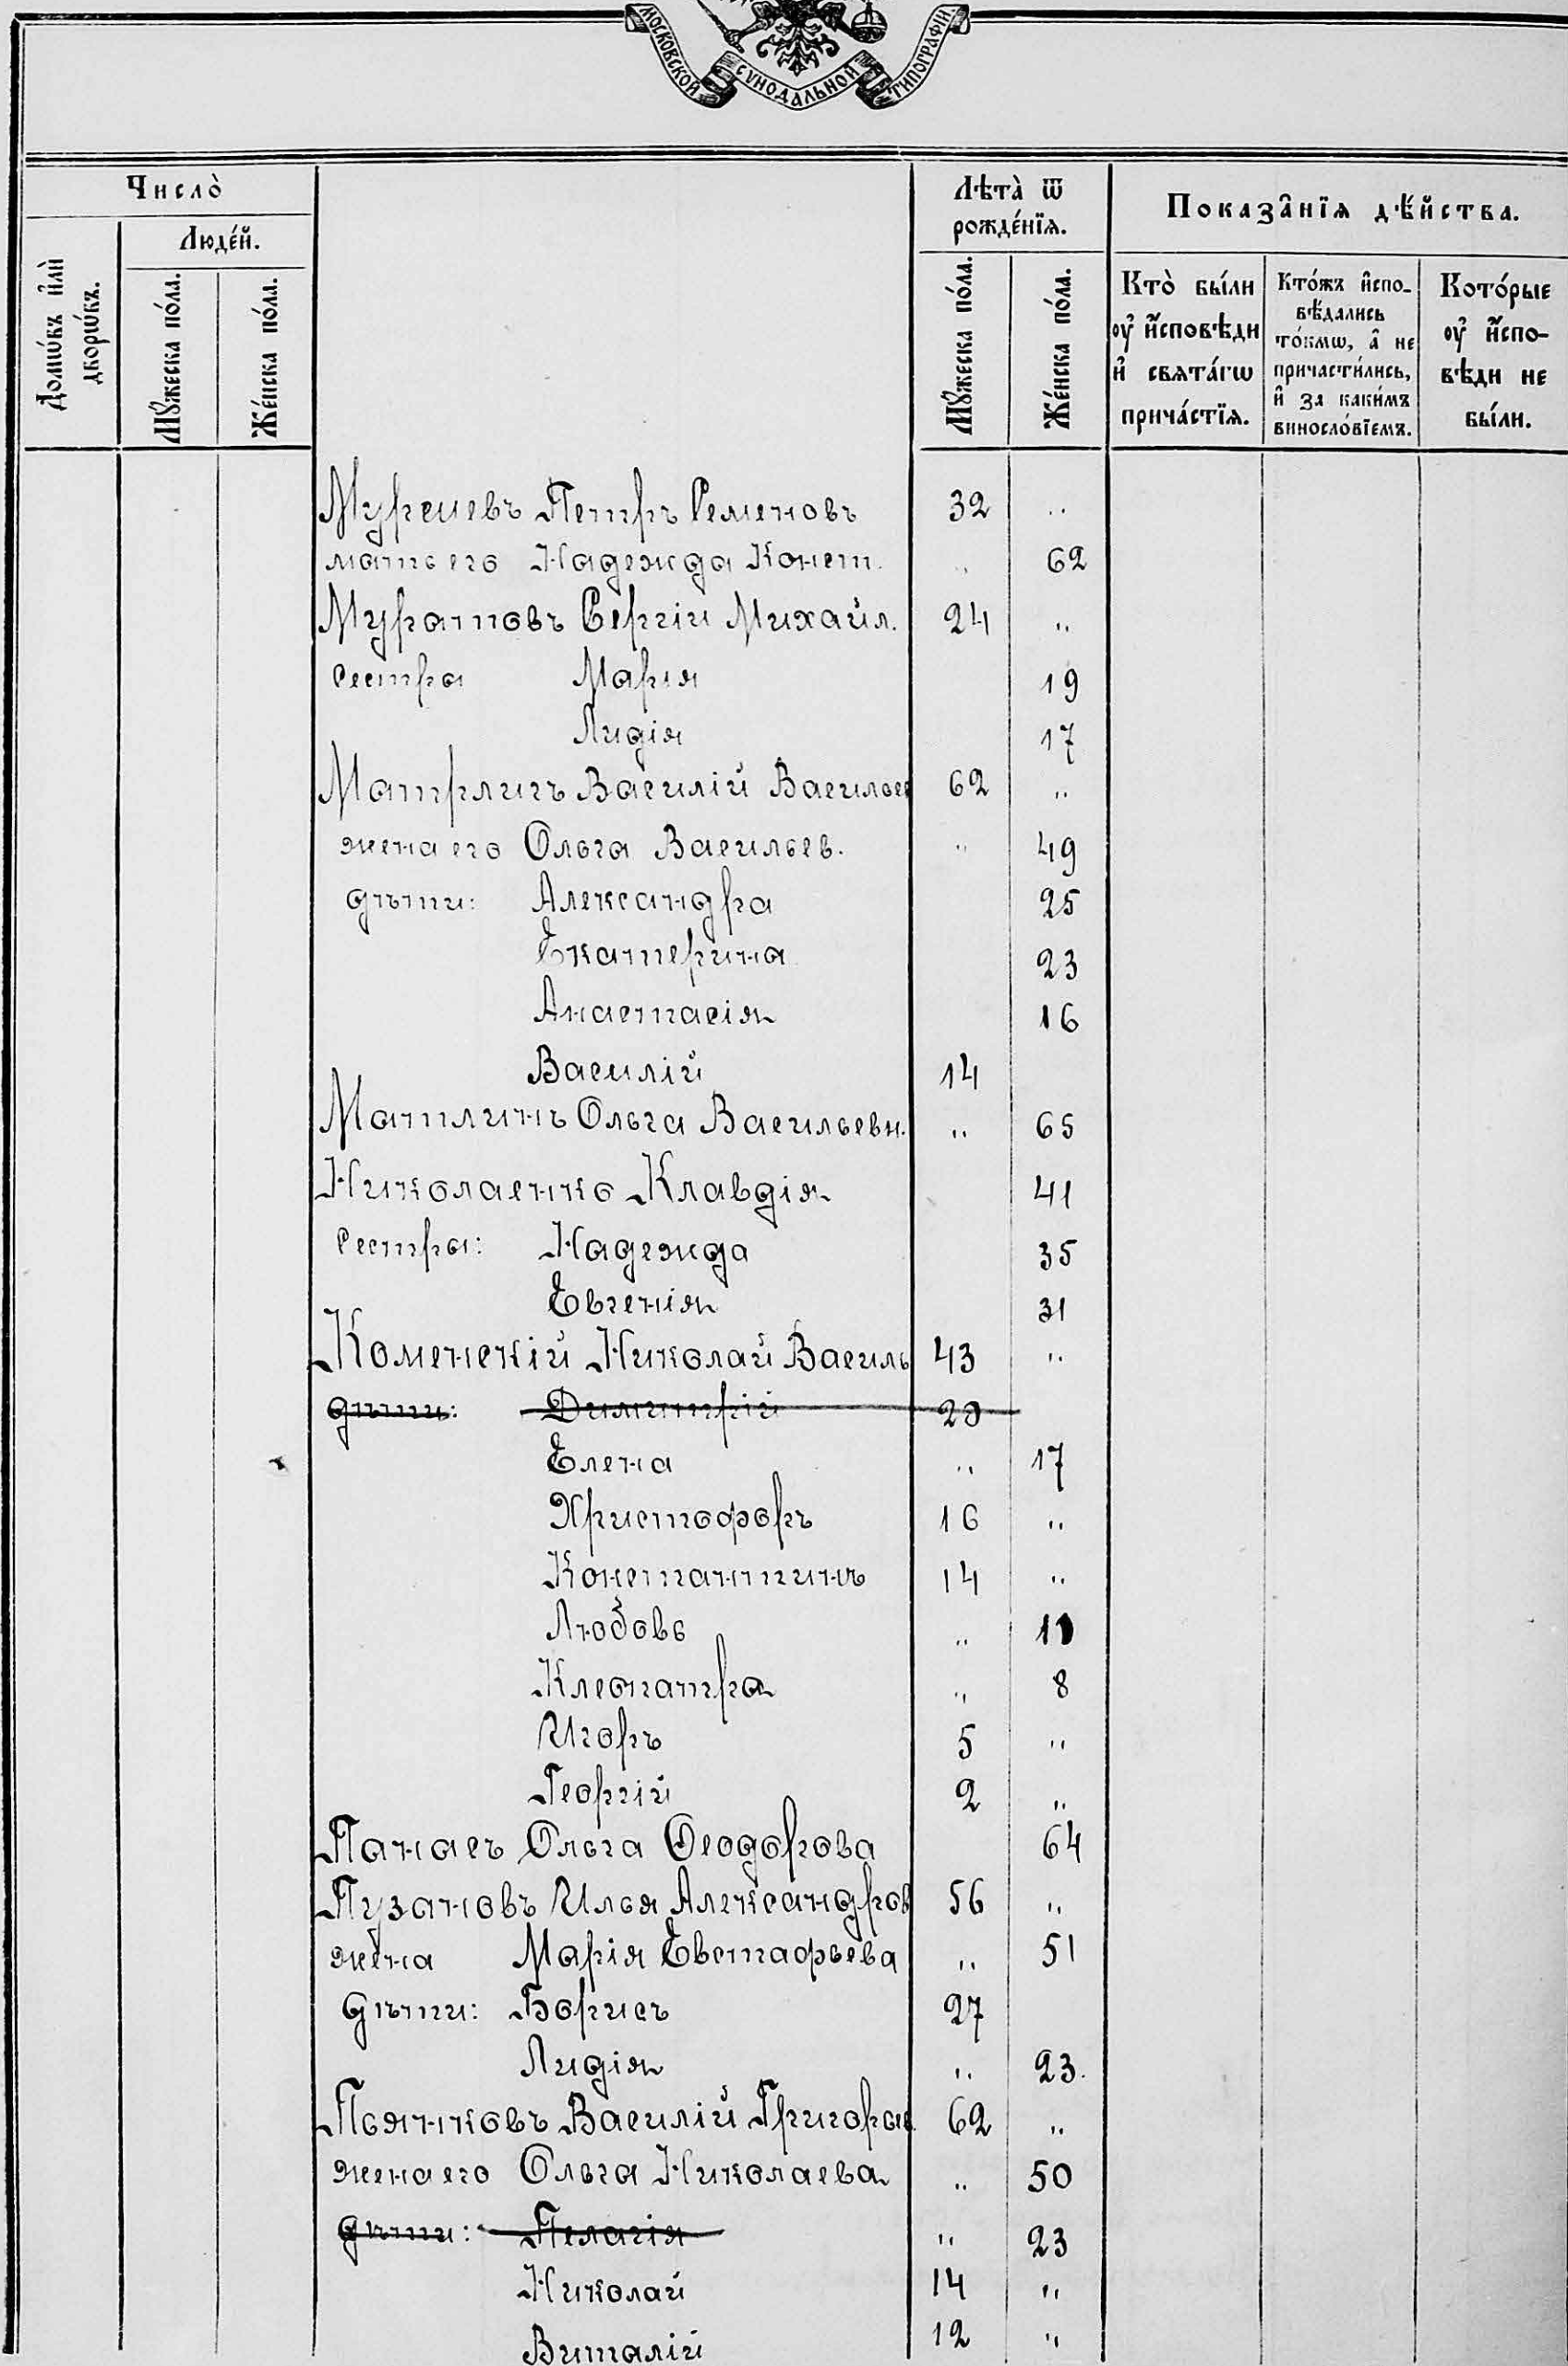 МОСКОВСКОЙ СѴНОДАЛЬНОЙ ТИПОГРАФІИ
Число̀
Людéй.
Домѡ́въ и҆лѝ дворѡ́въ.
Мꙋ́жеска по́ла.
Же́нска по́ла.
Лѣта̀ ѿ рожде́нїѧ.
Мꙋ́жеска по́ла.
Же́нска по́ла.
Показа̑нїѧ дѣ́йства.
Кто̀ бы́ли оу҆ и҆́сповѣди и҆ свѧта́гѡ прича́стїѧ.
Кто́жъ и҆спо-вѣ́дались то́кмѡ, а҆ не причасти́лись, и҆ за каки́мъ винослóвїемъ.
Кото́рые оу҆ и҆́спо-вѣди не бы́ли.
Петръ Семеновъ 32 "
мать его Надежда Конст. " 62
Муратовъ Сергій Михайл. 24 "
сестра Марія 19
Лидія 17
Василій Васильев 62 "
жена его Ольга Васильев. " 49
дѣти: Александра 25
Екатерина 23
Анастасія 16
Василій 14
Матлинъ Ольга Васильевн. " 65
Николаенко Клавдія 41
сестры: Надежда 35
Евгенія 31
Коменскій Николай Василь 43 "
дѣти: Димитрій 20
Елена " 17
Христофоръ 16 "
Константинъ 14 "
Любовь "
Клеопатра " 8
Игорь 5 "
Георгій 2 "
Панаеъ Ольга Ѳеодорова 64
Пузановъ Илья Александров 56 "
жена Марія Евстафьева " 51
дѣти: Борисъ 27
Лидія " 23.
Василій Григорье 62 "
жена его Ольга Николаева " 50
дѣти: Пелагія " 23
Николай 14 "
Виталій 12 "